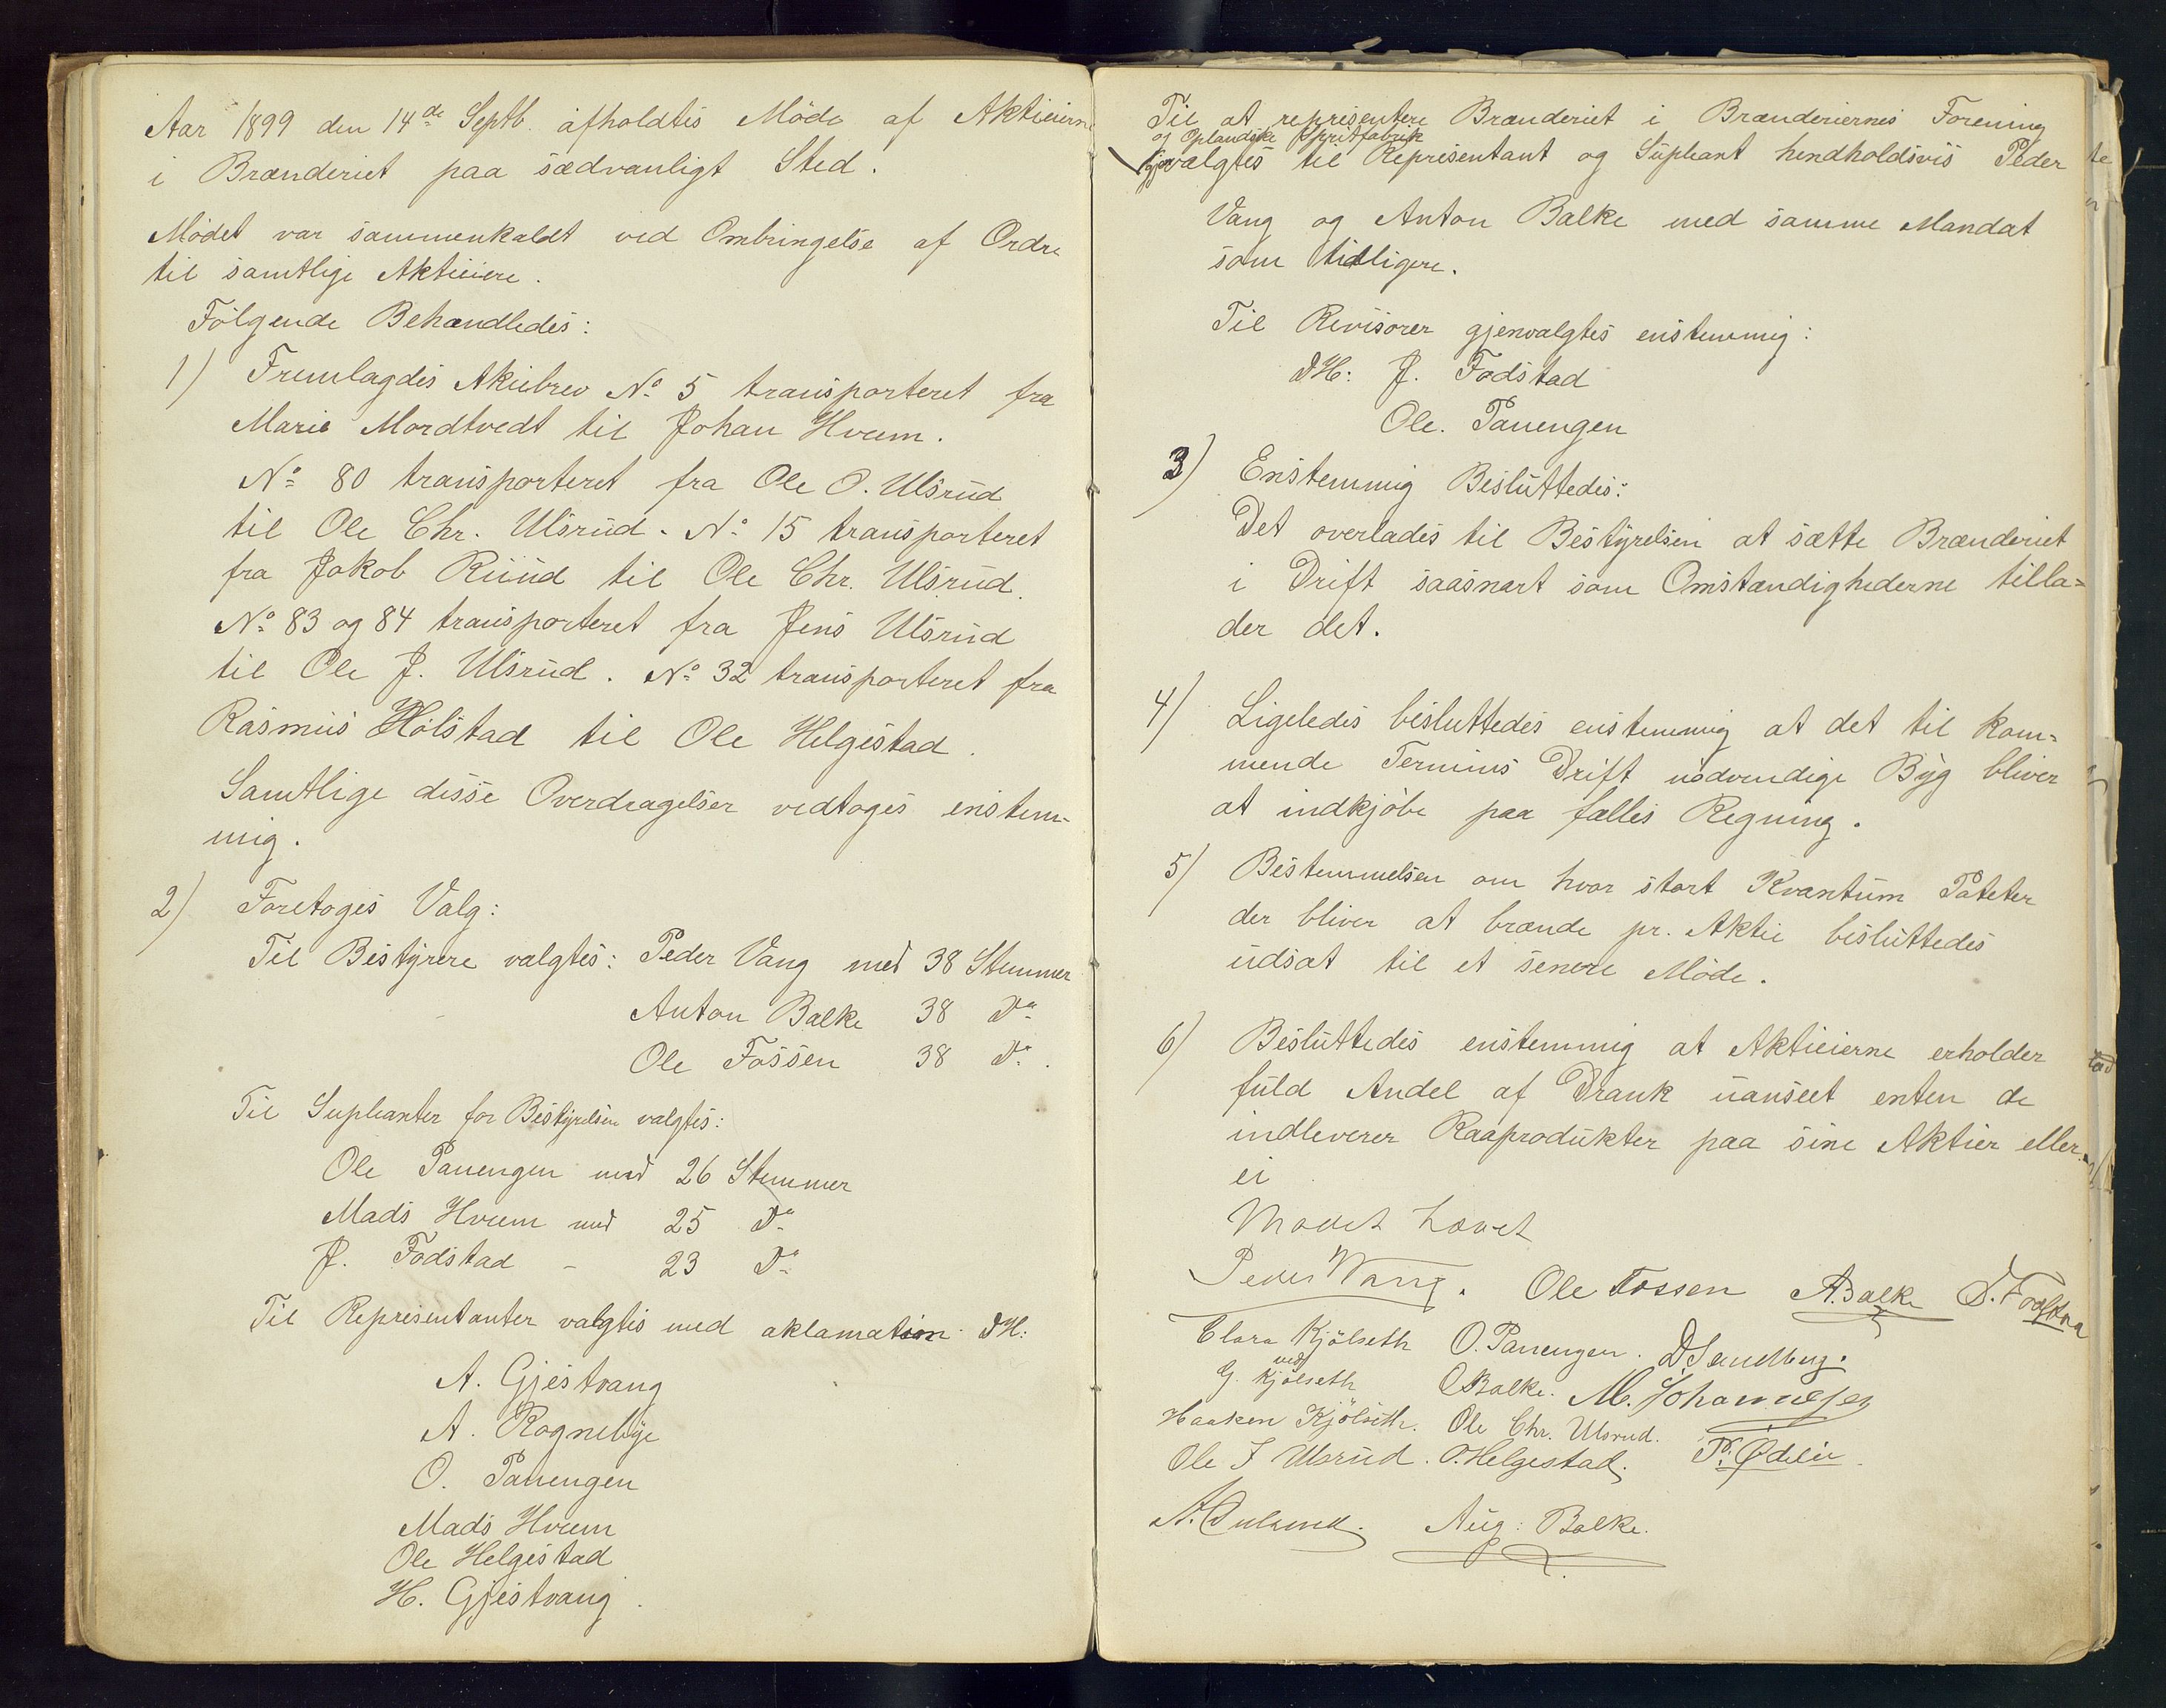 Aar 1899 den 14de Septb. afholdtes Möde af Aktieierne
i Brænderiet paa sædvanligt Sted.
Mödet var sammenkaldt ved Ombringelse af Ordre
til samtlige Aktieiere.
Fölgende Behandledes:
1) Fremlagdes Akiebrev No 5 transporteret fra
Marie Mordtvedt til Johan Hveem.
No 80 transporteret fra Ole O. Ulsrud
til Ole Chr. Ulsrud. No 15 transporteret
fra Jakob Ruud til Ole Chr. Ulsrud.
No 83 og 84 transporteret fra Jens Ulsrud
til Ole J. Ulsrud. No 32 transporteret fra
Rasmus Hölstad til Ole Helgestad.
Samtlige disse Overdragelser vedtoges enstem-
mig.
2) Foretoges Valg:
Til Bestyrere valgtes: Peder Vang med 38 Stemmer
Anton Balke 38 Do
Ole Fossen 38 Do.
Til Supleanter for Bestyrelsen valgtes:
Ole Panengen med 26 Stemmer
Mads Hveem med 25 Do
J. Fodstad - 23 Do
Til Representanter valgtes med aklamation DH:
A. Gjestvang
A. Rognebye
O. Panengen
Mads Hveem
Ole Helgestad
H. Gjestvang.
Til at representere Brænderiet i Brænderiernes Forening
og Oplandske Spritfabrik
gjenvalgtes til Representant og Supleant hendholdsvis Peder
Vang og Anton Balke med samme Mandat
som tidligere.
Til Revisorer gjenvalgtes enstemmig:
DH: J. Fodstad
Ole. Panengen
3) Enstemmig Besluttedes:
Det overlades til Bestyrelsen at sætte Brænderiet
i Drift saasnart som Omstændighederne tilla=
der det.
4) Ligeledes besluttedes enstemmig at det til kom=
mende Termins Drift nödvendige Byg bliver
at indkjöbe paa fælles Regning.
5) Bestemmelsen om hvor stort Kvantum Poteter
der bliver at brænde pr. Aktie besluttedes
udsat til et senere Möde.
6) Besluttedes enstemmig at Aktieierne erholder
fuld Andel af Drank uanseet enten de
indleverer Raaprodukter paa sine Aktier eller
ei
Mödet hævet
Peder Wang. Ole Fossen A. Balke
Clara Kjölseth O. Panengen. D. Sandberg.
ved
G. Kjölseth O Balke. M. Johannesen
Haaken Kjölseth. Ole Chr. Ulsrud. P. Ødeen
Ole J Ulsrud. O. Helgestad.
Aug: Balke.